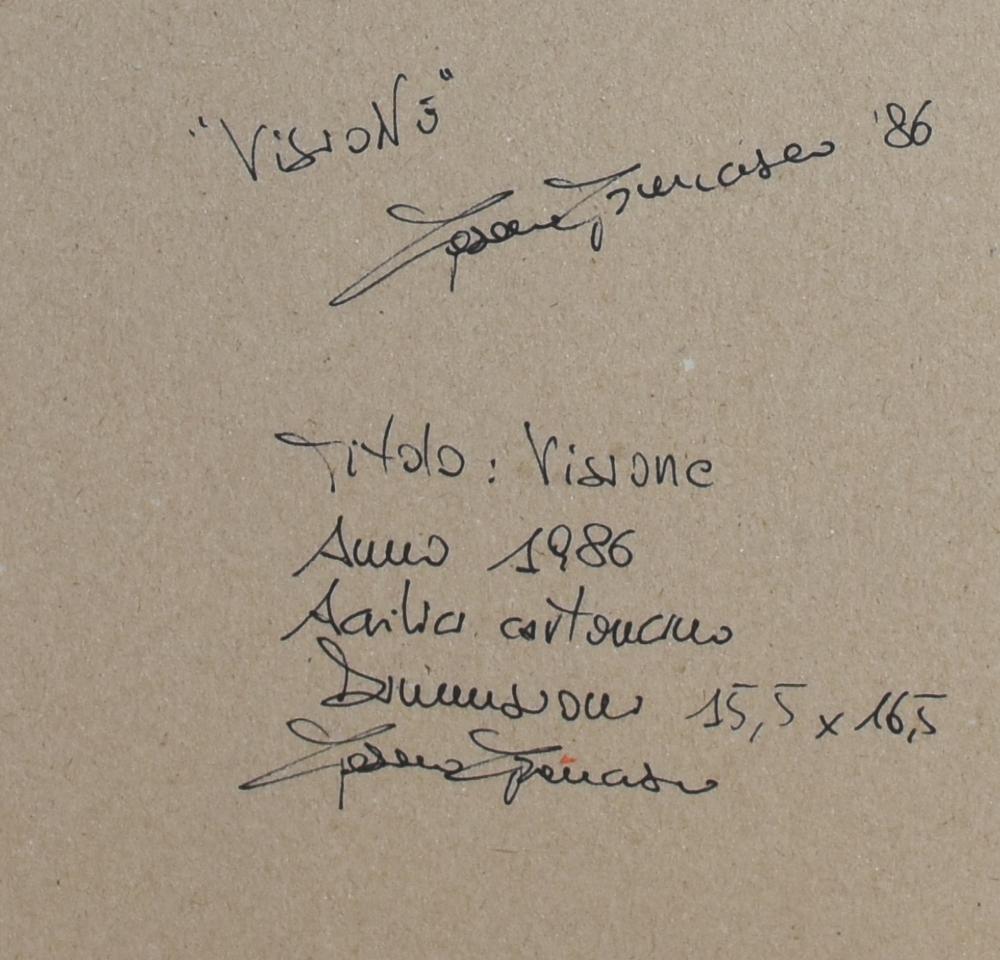 "VisioNe"
Francesco '86
Titolo: Visione
Anno 1986
cartoncino
Dimensioni 15,5 x 16,5
Francesco